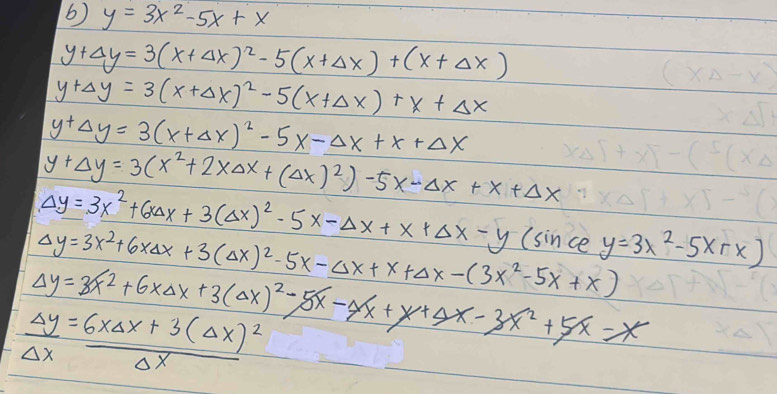 b) y = 3x² - 5x + x
y + Δy = 3(x + Δx)² - 5(x + Δx) + (x + Δx)
y + Δy = 3(x + Δx)² - 5(x + Δx) + x + Δx
y + Δy = 3(x + Δx)² - 5x - Δx + x + Δx
y + Δy = 3(x² + 2xΔx + (Δx)²) - 5x - Δx + x + Δx
Δy = 3x² + 6xΔx + 3(Δx)² - 5x - Δx + x + Δx - y (since y = 3x² - 5x + x)
Δy = 3x² + 6xΔx + 3(Δx)² - 5x - Δx + x + Δx - (3x² - 5x + x)
Δy = 3x² + 6xΔx + 3(Δx)² - 5x - Δx + x + Δx - 3x² + 5x - x
Δy = 6xΔx + 3(Δx)²
Δx Δx